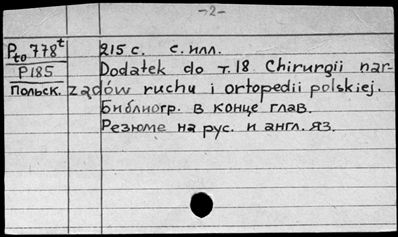 -2-
Pto 778t 215 с. с. илл.
P185 Dodatek do т. 18 Chirurgii nar-
Польск. ządów ruchu i ortopedii polskiej.
Библиогр. в конце глав.
Резюме на рус. и англ. яз.